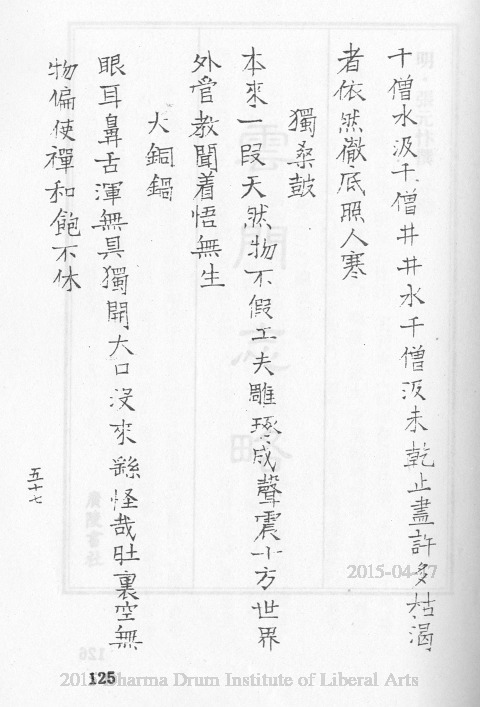 千僧水汲千僧井井水千僧汲未乾止盡許多枯渴
者依然徹底照人寒
獨桑鼓
本來一段天然物不假工夫雕琢成聲震十方世界
外管教聞着悟無生
大銅鍋
眼耳鼻舌渾無具獨開大口沒來繇怪哉肚裏空無
物偏使禪和飽不休
五十七
125
2015-04-27
Dharma Drum Institute of Liberal Arts